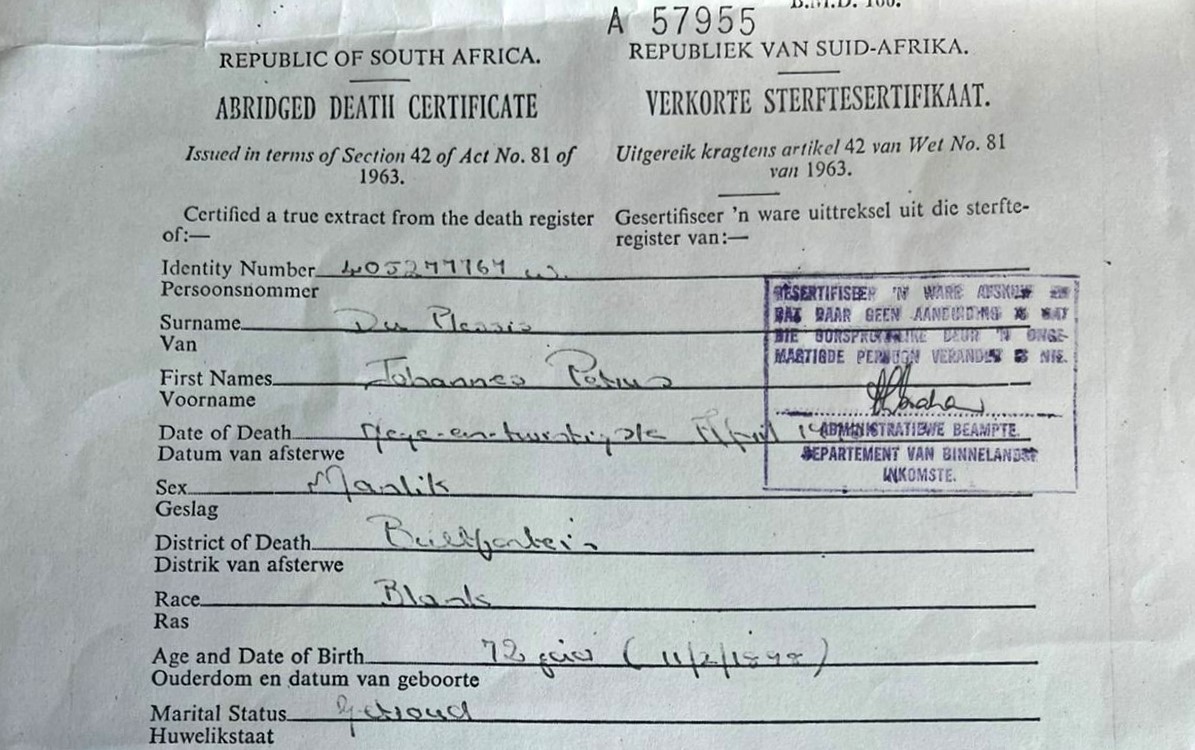 B.M.D. 100.
A 57955
REPUBLIC OF SOUTH AFRICA.
REPUBLIEK VAN SUID-AFRIKA.
ABRIDGED DEATH CERTIFICATE
VERKORTE STERFTESERTIFIKAAT.
Issued in terms of Section 42 of Act No. 81 of
1963.
Uitgereik kragtens artikel 42 van Wet No. 81
van 1963.
Certified a true extract from the death register
of:—
Gesertifiseer 'n ware uittreksel uit die sterfte-
register van:—
Identity Number 405277767 W.
Persoonsnommer
Surname Du Plessis
Van
First Names Johannes Petrus
Voorname
Date of Death Nege-en-twintigste April
Datum van afsterwe
Sex Manlik
Geslag
District of Death Bultfontein
Distrik van afsterwe
Race Blank
Ras
Age and Date of Birth 72 jaar (11/2/1898)
Ouderdom en datum van geboorte
Marital Status Getroud
Huwelikstaat
GESERTIFISEER 'N WARE AFSKRIF EN
DAT DAAR GEEN AANDUIDING IS DAT
DIE OORSPRONKLIKE DEUR 'N ONGE-
MAGTIGDE PERSOON VERANDER IS NIE.
ADMINISTRATIEWE BEAMPTE.
DEPARTEMENT VAN BINNELANDSE
INKOMSTE.